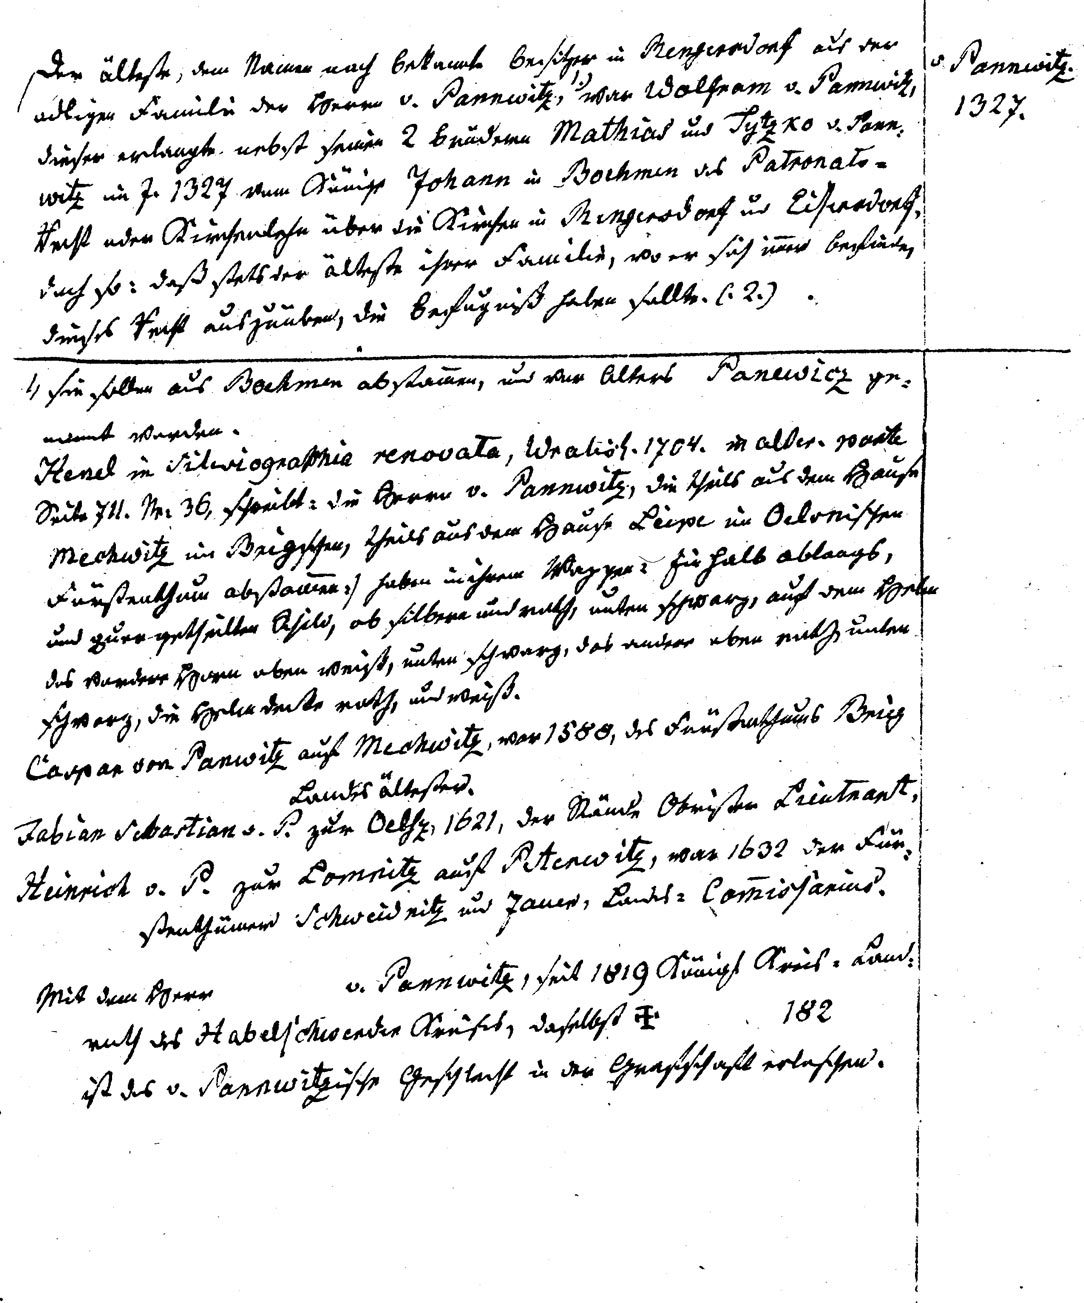 Der älteste, dem Namen nach bekannte Besitzer in Rengersdorf aus der
adligen Familie der Herrn v. Pannwitz, 1.) war Wolfram v. Pannwitz,
dieser erlangte nebst seinen 2 Brüdern Mathias und Tytzko v. Pann-
witz im J. 1327 vom König Johann in Boehmen das Patronats-
Recht oder Kirchenlehn über die Kirchen in Rengersdorf und Eisersdorf,
doch so: daß stets der älteste ihrer Familie, wo er sich immer befinde,
dieses Recht auszuüben, die Befugniß haben sollte. (. 2.)
v. Pannwitz.
1327.
1, sie sollen aus Boehmen abstammen, und vor Alters Panewicz ge-
nannt worden.
Henel in Silesiographia renovata, Wratisl. 1704. in alter. parte
Seite 711. Nr: 36, schreibt: die Herrn v. Pannwitz, die theils aus dem Hause
Mechwitz im Briegschen, theils aus dem Hause Leipe im Oelsnischen
Fürstenthum abstammen:) haben in ihrem Wappen: Ein halb ablangs,
und quer getheilten Schild, ob silbern und roth, unten schwarz, auf dem Helm
das vordere Horn oben weiß, unten schwarz, das andere oben roth, unten
schwarz, die Helmdecke roth, und weiß.
Caspar von Panwitz auf Mechwitz, war 1588, des Fürstenthums Brieg
Landes ältester.
Fabian Sebastian v. P. zur Oelsz, 1621, der Stände Obrister Lieutnant,
Heinrich v. P. zur Lomnitz auf Peterwitz, war 1632 der Für-
stenthümer Schweidnitz und Jauer, Landes- Commissarius.
Mit dem Herr v. Pannwitz, seit 1819 Königl Kreis- Land-
rath des Habelschwerdter Kreises, daselbst ✠ 182
ist das v. Pannwitzische Geschlecht in der Grafschaft erloschen.